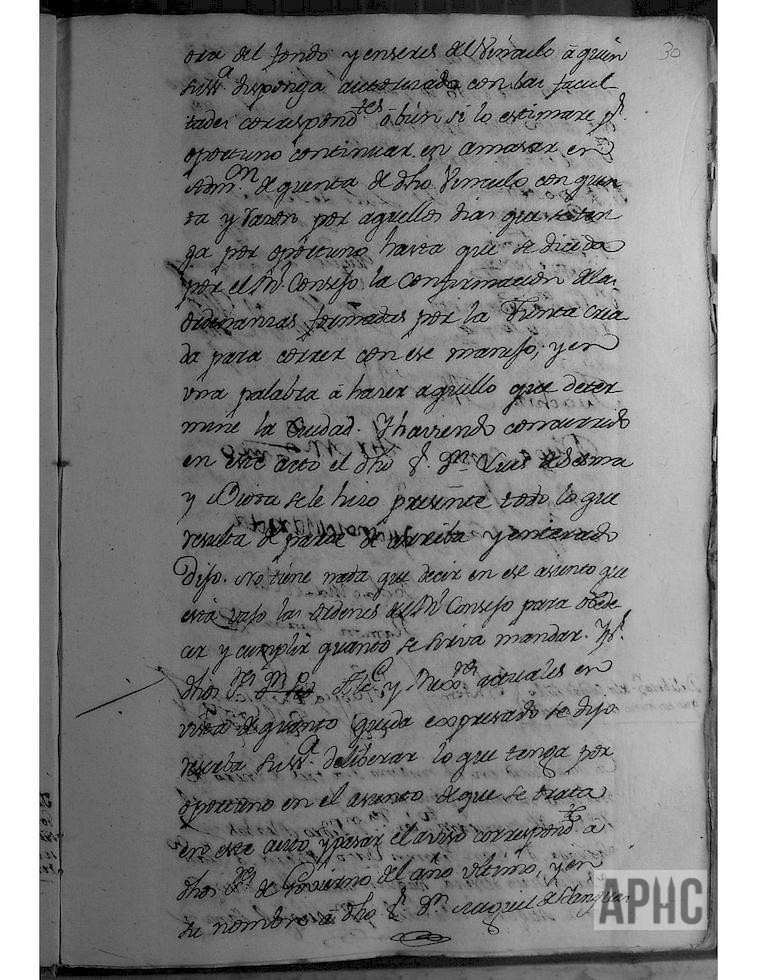 30
ora del fondo y enseres del Vinculo â quien
Su Sª disponga autorizado con las facul
tades correspond.tes ô bien si lo estimare p.r
oportuno continuar en amasar en
Adm.n de quenta de dho Vinculo con quen
ta y razon por aquellos dias que se ten
ga por oportuno hasta que se decida
por el R.l Consejo la Confirmacion de las
ordenanzas formadas por la Junta cria
da para correr con ese manejo; y en
una palabra â hazer aquello que deter
mine la Ciudad. Y haviendo concurrido
en este acto el dho S.r D.n Luis de Sesma
y se le hizo presente todo lo que
resulta de parte de arriba y enterado
Dijo. No tiene nada que decir en ese asunto que
está vajo las ordenes del R.l Consejo para obede
cer y cumplir quanto se sirva mandar. Y p.r
dhos S.res Alc.e y Rex.res actuales en
vista de quanto queda expresado se dijo
reserba Su Sª deliberar lo que tenga por
oportuno en el asunto de que se trata
en este auto, y pasar el aviso correspond.te â
dhos S.res de Govierno del año ultimo, y en
su nombre â dho S.r D.n Miguel de
APHC